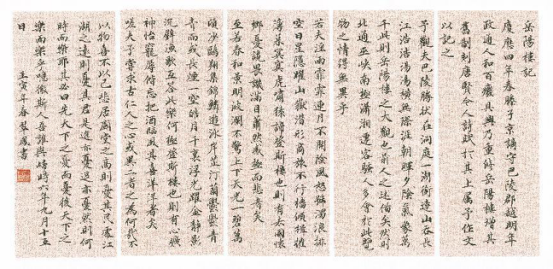 岳陽樓記
慶曆四年春滕子京謫守巴陵郡越明年
政通人和百廢具興乃重修岳陽樓增其
舊制刻唐賢今人詩賦於其上屬予作文
以記之
予觀夫巴陵勝狀在洞庭一湖銜遠山吞長
江浩浩湯湯橫無際涯朝暉夕陰氣象萬
千此則岳陽樓之大觀也前人之述備矣然則
北通巫峽南極瀟湘遷客騷人多會於此覽
物之情得無異乎
若夫淫雨霏霏連月不開陰風怒號濁浪排
空日星隱曜山嶽潛形商旅不行檣傾楫摧
薄暮冥冥虎嘯猿啼登斯樓也則有去國懷
鄉憂讒畏譏滿目蕭然感極而悲者矣
至若春和景明波瀾不驚上下天光一碧萬
頃沙鷗翔集錦鱗游泳岸芷汀蘭鬱鬱青
青而或長煙一空皓月千里浮光躍金靜影
沉璧漁歌互答此樂何極登斯樓也則有心曠
神怡寵辱偕忘把酒臨風其喜洋洋者矣
嗟夫予嘗求古仁人之心或異二者之為何哉不
以物喜不以己悲居廟堂之高則憂其民處江
湖之遠則憂其君是進亦憂退亦憂然則何
時而樂耶其必曰先天下之憂而憂後天下之
樂而樂乎噫微斯人吾誰與歸時六年九月十五
日 壬寅年春 書